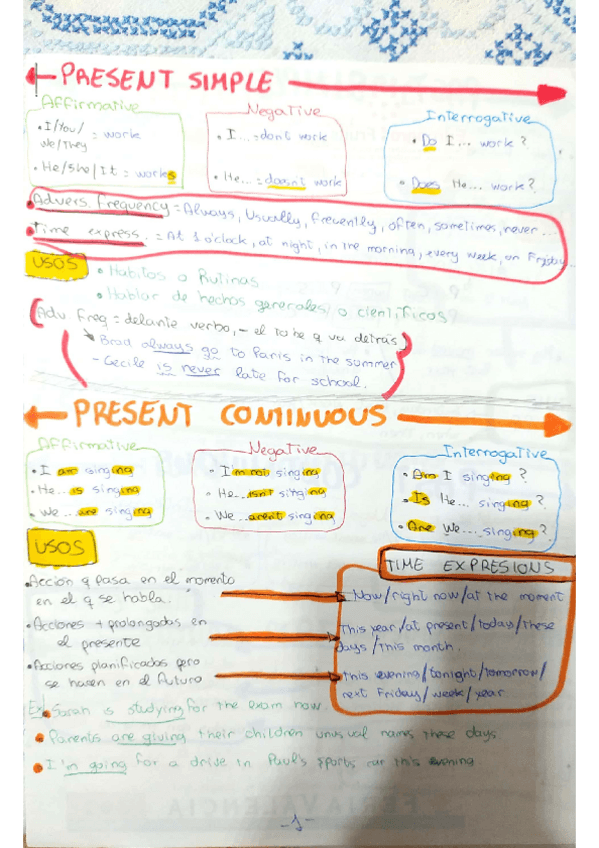 PRESENT SIMPLE
Affirmative
Negative
Interrogative
• I/You/We/They = work
• He/She/It = works
• I... = don't work
• He... = doesn't work
• Do I... work?
• Does He... work?
• Advers. Frequency = Always, Usually, frecuently, often, sometimes, never...
• Time express. = At 1 o'clock, at night, in the morning, every week, on Friday...
USOS
• Habitos o Rutinas
• Hablar de hechos generales o científicos
Adv Freq = delante verbo, – el to be q va detrás
Brad always go to Paris in the summer
- Cecile is never late for school.
PRESENT CONTINUOUS
Affirmative
Negative
Interrogative
• I am singing
• He... is singing
• We... are singing
• I'm not singing
• He... isn't singing
• We... aren't singing
• Am I singing?
• Is He... singing?
• Are We... singing?
USOS
TIME EXPRESIONS
• Acción q pasa en el momento
en el q se habla.
Now/right now/at the moment
• Acciones + prolongadas en
el presente
This year/at present/today/these
days/this month.
• Acciones planificadas pero
se hacen en el futuro
This evening/tonight/tomorrow/
next Friday/week/year
Ex. Sarah is studying for the exam now.
• Parents are giving their children unusual names these days.
• I'm going for a drive in Paul's sports car this evening
FERIA VALENCIA
-1-